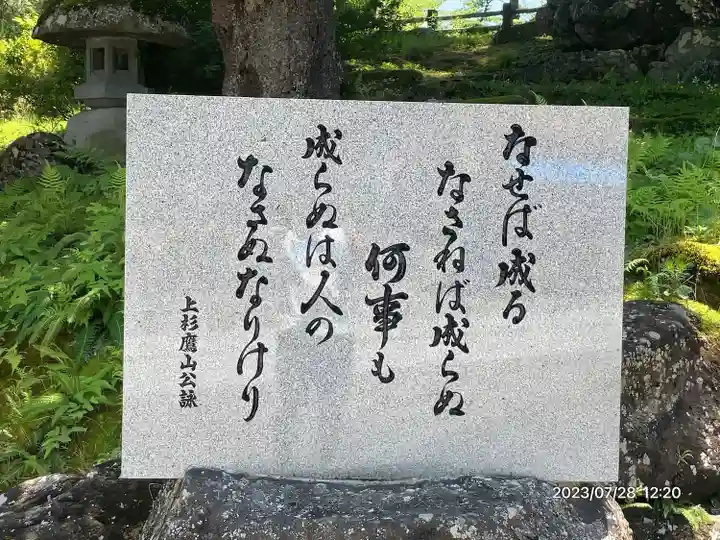 なせば成る
なさねば成らぬ
何事も
成らぬは人の
なさぬなりけり
上杉鷹山公詠
2023/07/28 12:20